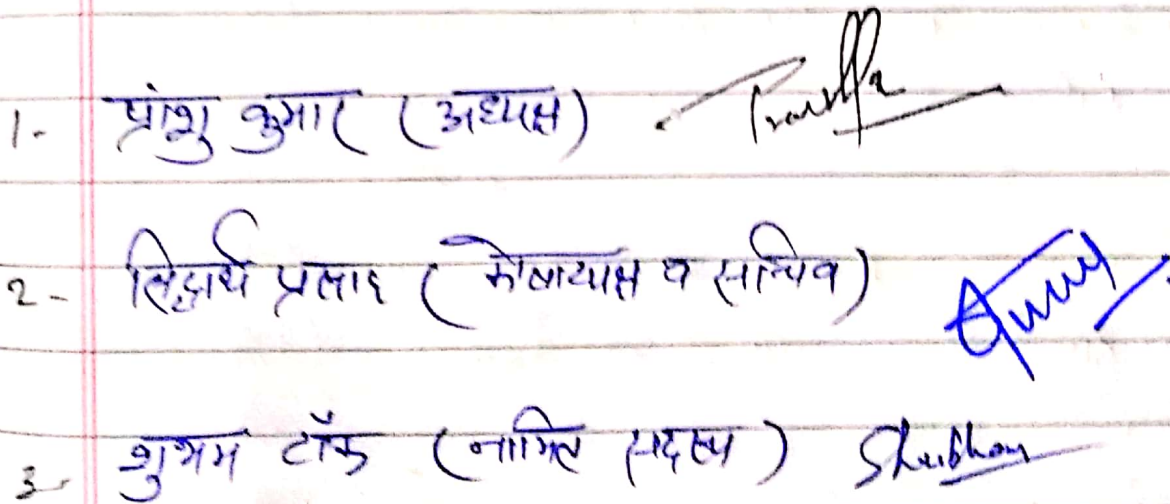 1- प्रांशु कुमार (अध्यक्ष)
2- सिद्धार्थ प्रसाद (कोषाध्यक्ष व सचिव)
3- शुभम टॉक (नामित सदस्य) Shubham